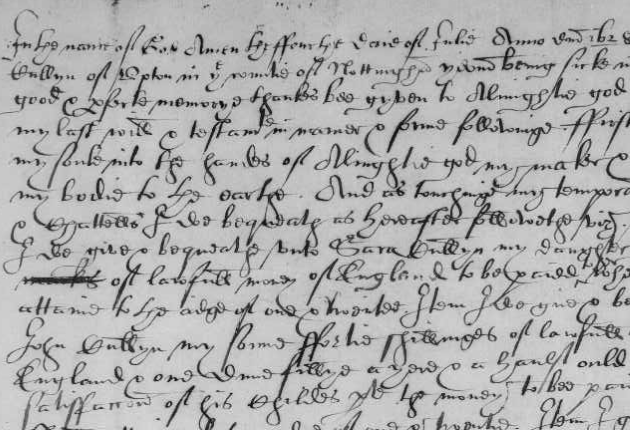 In the name of God Amen the ffourthe daie of Julie Anno dm 162
Cullyn of Upton in ye countie of Nottingh yeoma being sicke i
good & pfecte memorye thankes bee gyven to Almightie god
my last will & testamte in manner & forme followinge. ffirst
my soule into the handes of Almightie god my maker &
my bodie to the earthe. And as touchinge my tempora
& Cattells I doe bequeath as hereafter followethe viz.
I doe give & bequeathe unto Sara Cullyn my daughter
of lawfull money of England to be paied
attaine to the adge of one & twentie. Item I doe give & be
John Cullyn my sonne ffortie shillinges of lawfull
England & one fillye a yere & a haulf ould
satisfaccon of his Childes pte the money to bee pai
one & twentie Item I g